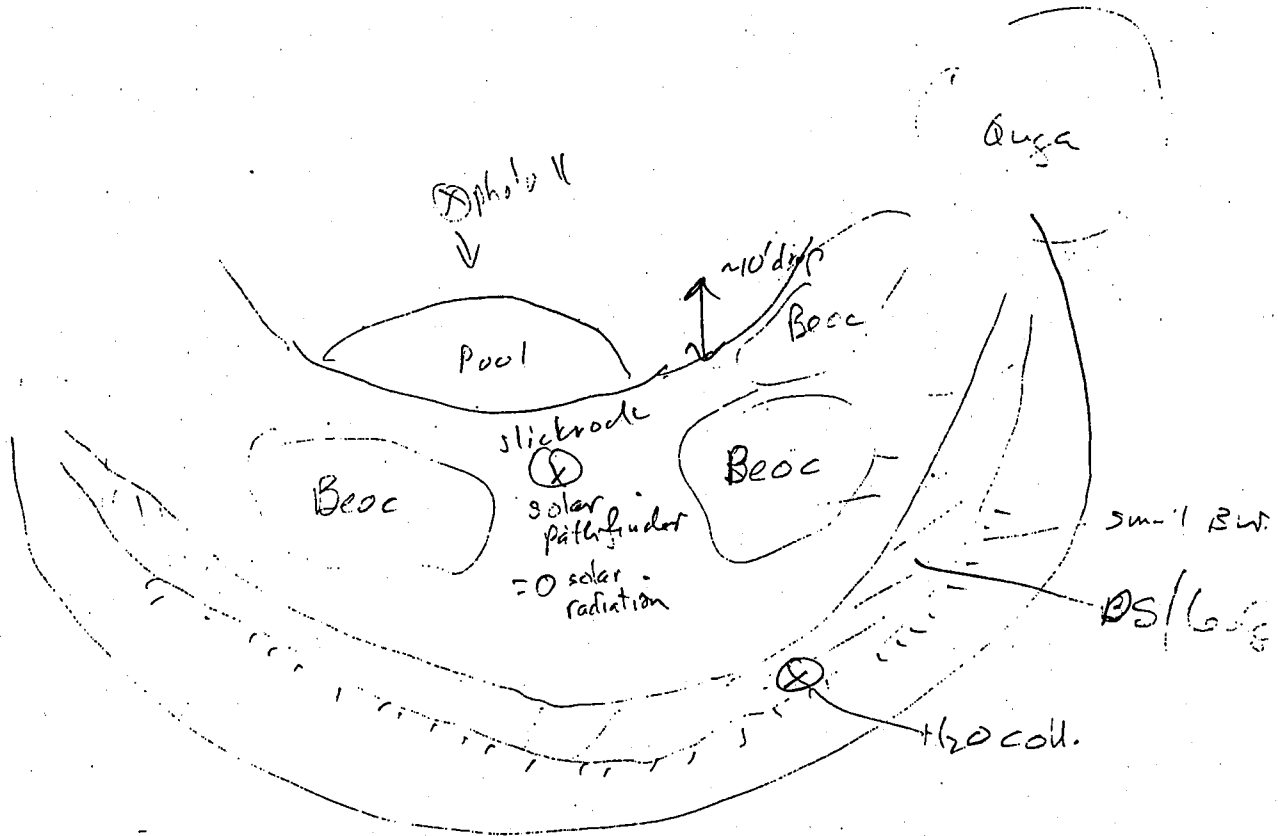 Quga
photo 11
~10' drop
Beoc
Pool
slickrock
Beoc
Beoc
solar
pathfinder
= 0 solar
radiation
H2O coll.